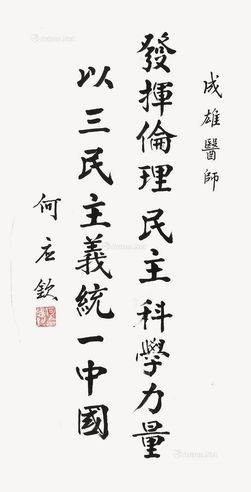 成雄醫師
發揮倫理民主科學力量
以三民主義統一中國
何应欽